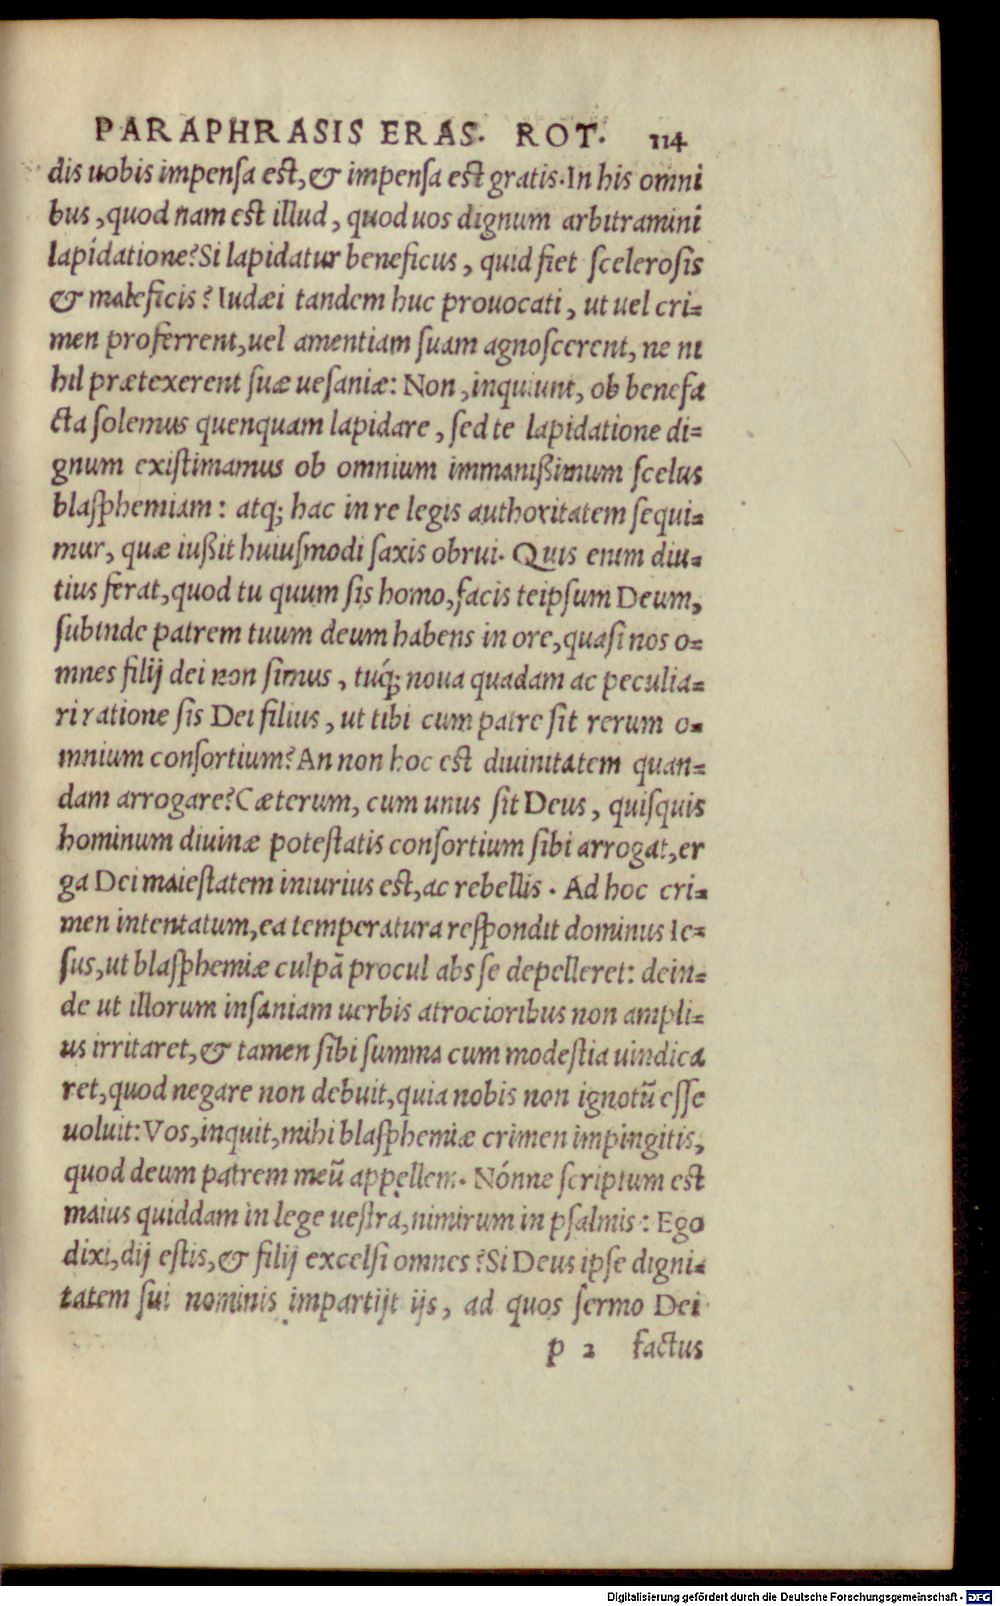 PARAPHRASIS ERAS. ROT. 114
dis uobis impensa est, & impensa est gratis. In his omni
bus, quod nam est illud, quod uos dignum arbitramini
lapidatione? Si lapidatur beneficus, quid fiet scelerosis
& maleficis? Iudæi tandem huc prouocati, ut uel cri=
men proferrent, uel amentiam suam agnoscerent, ne ni
hil prætexerent suæ uesaniæ: Non, inquiunt, ob benefa
cta solemus quenquam lapidare, sed te lapidatione di=
gnum existimamus ob omnium immanißimum scelus
blasphemiam: atq; hac in re legis authoritatem sequi=
mur, quæ iußit huiusmodi saxis obrui. Quis enim diu=
tius ferat, quod tu quum sis homo, facis teipsum Deum,
subinde patrem tuum deum habens in ore, quasi nos o=
mnes filij dei non simus, tuq́; noua quadam ac peculia=
ri ratione sis Dei filius, ut tibi cum patre sit rerum o=
mnium consortium? An non hoc est diuinitatem quan=
dam arrogare? Cæterum, cum unus sit Deus, quisquis
hominum diuinæ potestatis consortium sibi arrogat, er
ga Dei maiestatem iniurius est, ac rebellis. Ad hoc cri=
men intentatum, ea temperatura respondit dominus Ie=
sus, ut blasphemiæ culpā procul abs se depelleret: dein=
de ut illorum insaniam uerbis atrocioribus non ampli=
us irritaret, & tamen sibi summa cum modestia uindica
ret, quod negare non debuit, quia nobis non ignotū esse
uoluit: Vos, inquit, mihi blasphemiæ crimen impingitis,
quod deum patrem meū appellem. Nónne scriptum est
maius quiddam in lege uestra, nimirum in psalmis: Ego
dixi, dij estis, & filij excelsi omnes? Si Deus ipse digni=
tatem sui nominis impartijt ijs, ad quos sermo Dei
p 2 factus
Digitalisierung gefördert durch die Deutsche Forschungsgemeinschaft - DFG